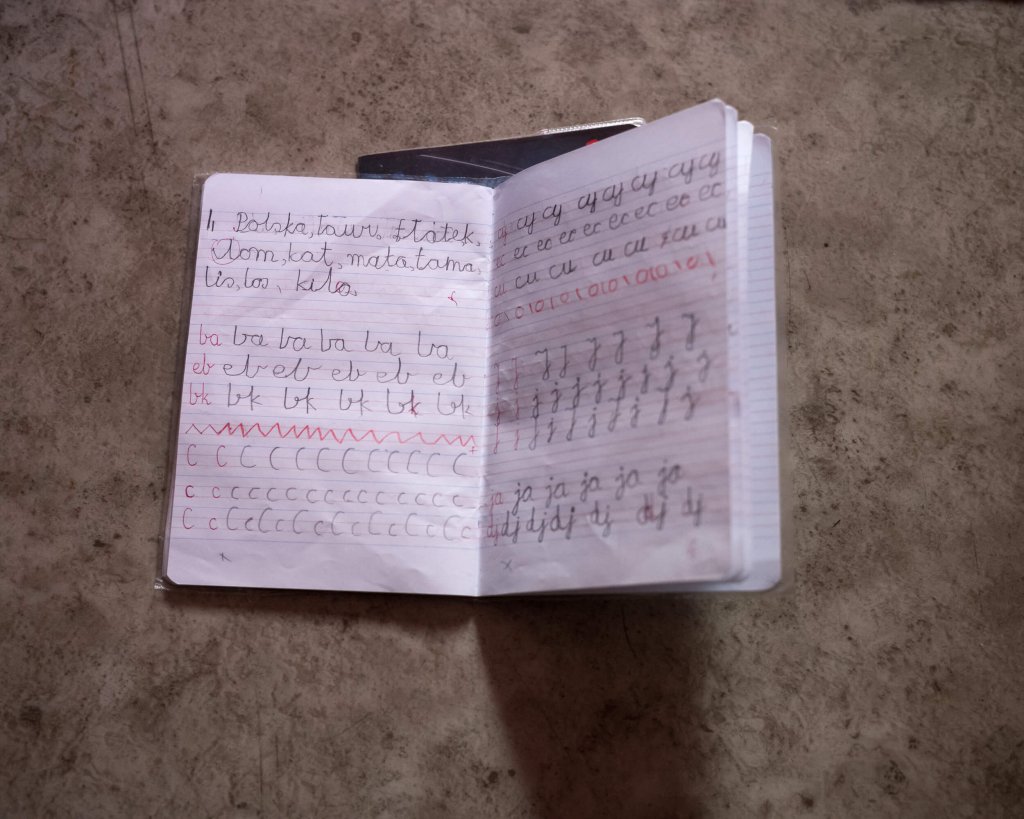 Polska,
Tom, kat, mata, tama,
lis, los, kilo
ba ba ba ba ba ba
eb eb eb eb eb eb
bk bk bk bk bk bk
C C C C C C C C C C C C
c c c c c c c c c c c c c c
C c C c C c C c C c C c C c C c
cy cy cy cy cy cy cy
ec ec ec ec ec ec ec ec
cu cu cu cu cu cu cu
j j j j j j j j
j j j j j j j j j j
j j j j j j j j j j
ja ja ja ja ja ja
dj dj dj dj dj dj dj